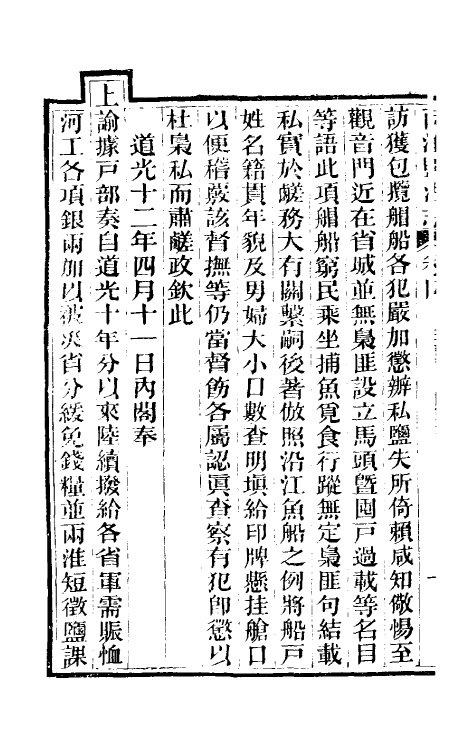 訪獲包攬䑠船各犯嚴加懲辦私鹽失所倚賴咸知儆惕至
觀音門近在省城並無梟匪設立馬頭暨囤戶過載等名目
等語此項䑠船窮民乘坐捕魚覓食行蹤無定梟匪句結載
私實於鹺務大有關繫嗣後著倣照沿江魚船之例將船戶
姓名籍貫年貌及男婦大小口數查明塡給印牌懸挂艙口
以便稽覈該督撫等仍當督飭各屬認眞查察有犯卽懲以
杜梟私而肅鹺政欽此
道光十二年四月十一日內閣奉
上諭據戸部奏自道光十年分以來陸續撥給各省軍需賑恤
河工各項銀兩加以被災省分緩免錢糧並兩淮短徵鹽課